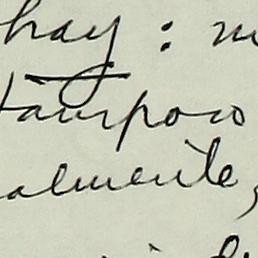 hay : m
tampoco
almente,